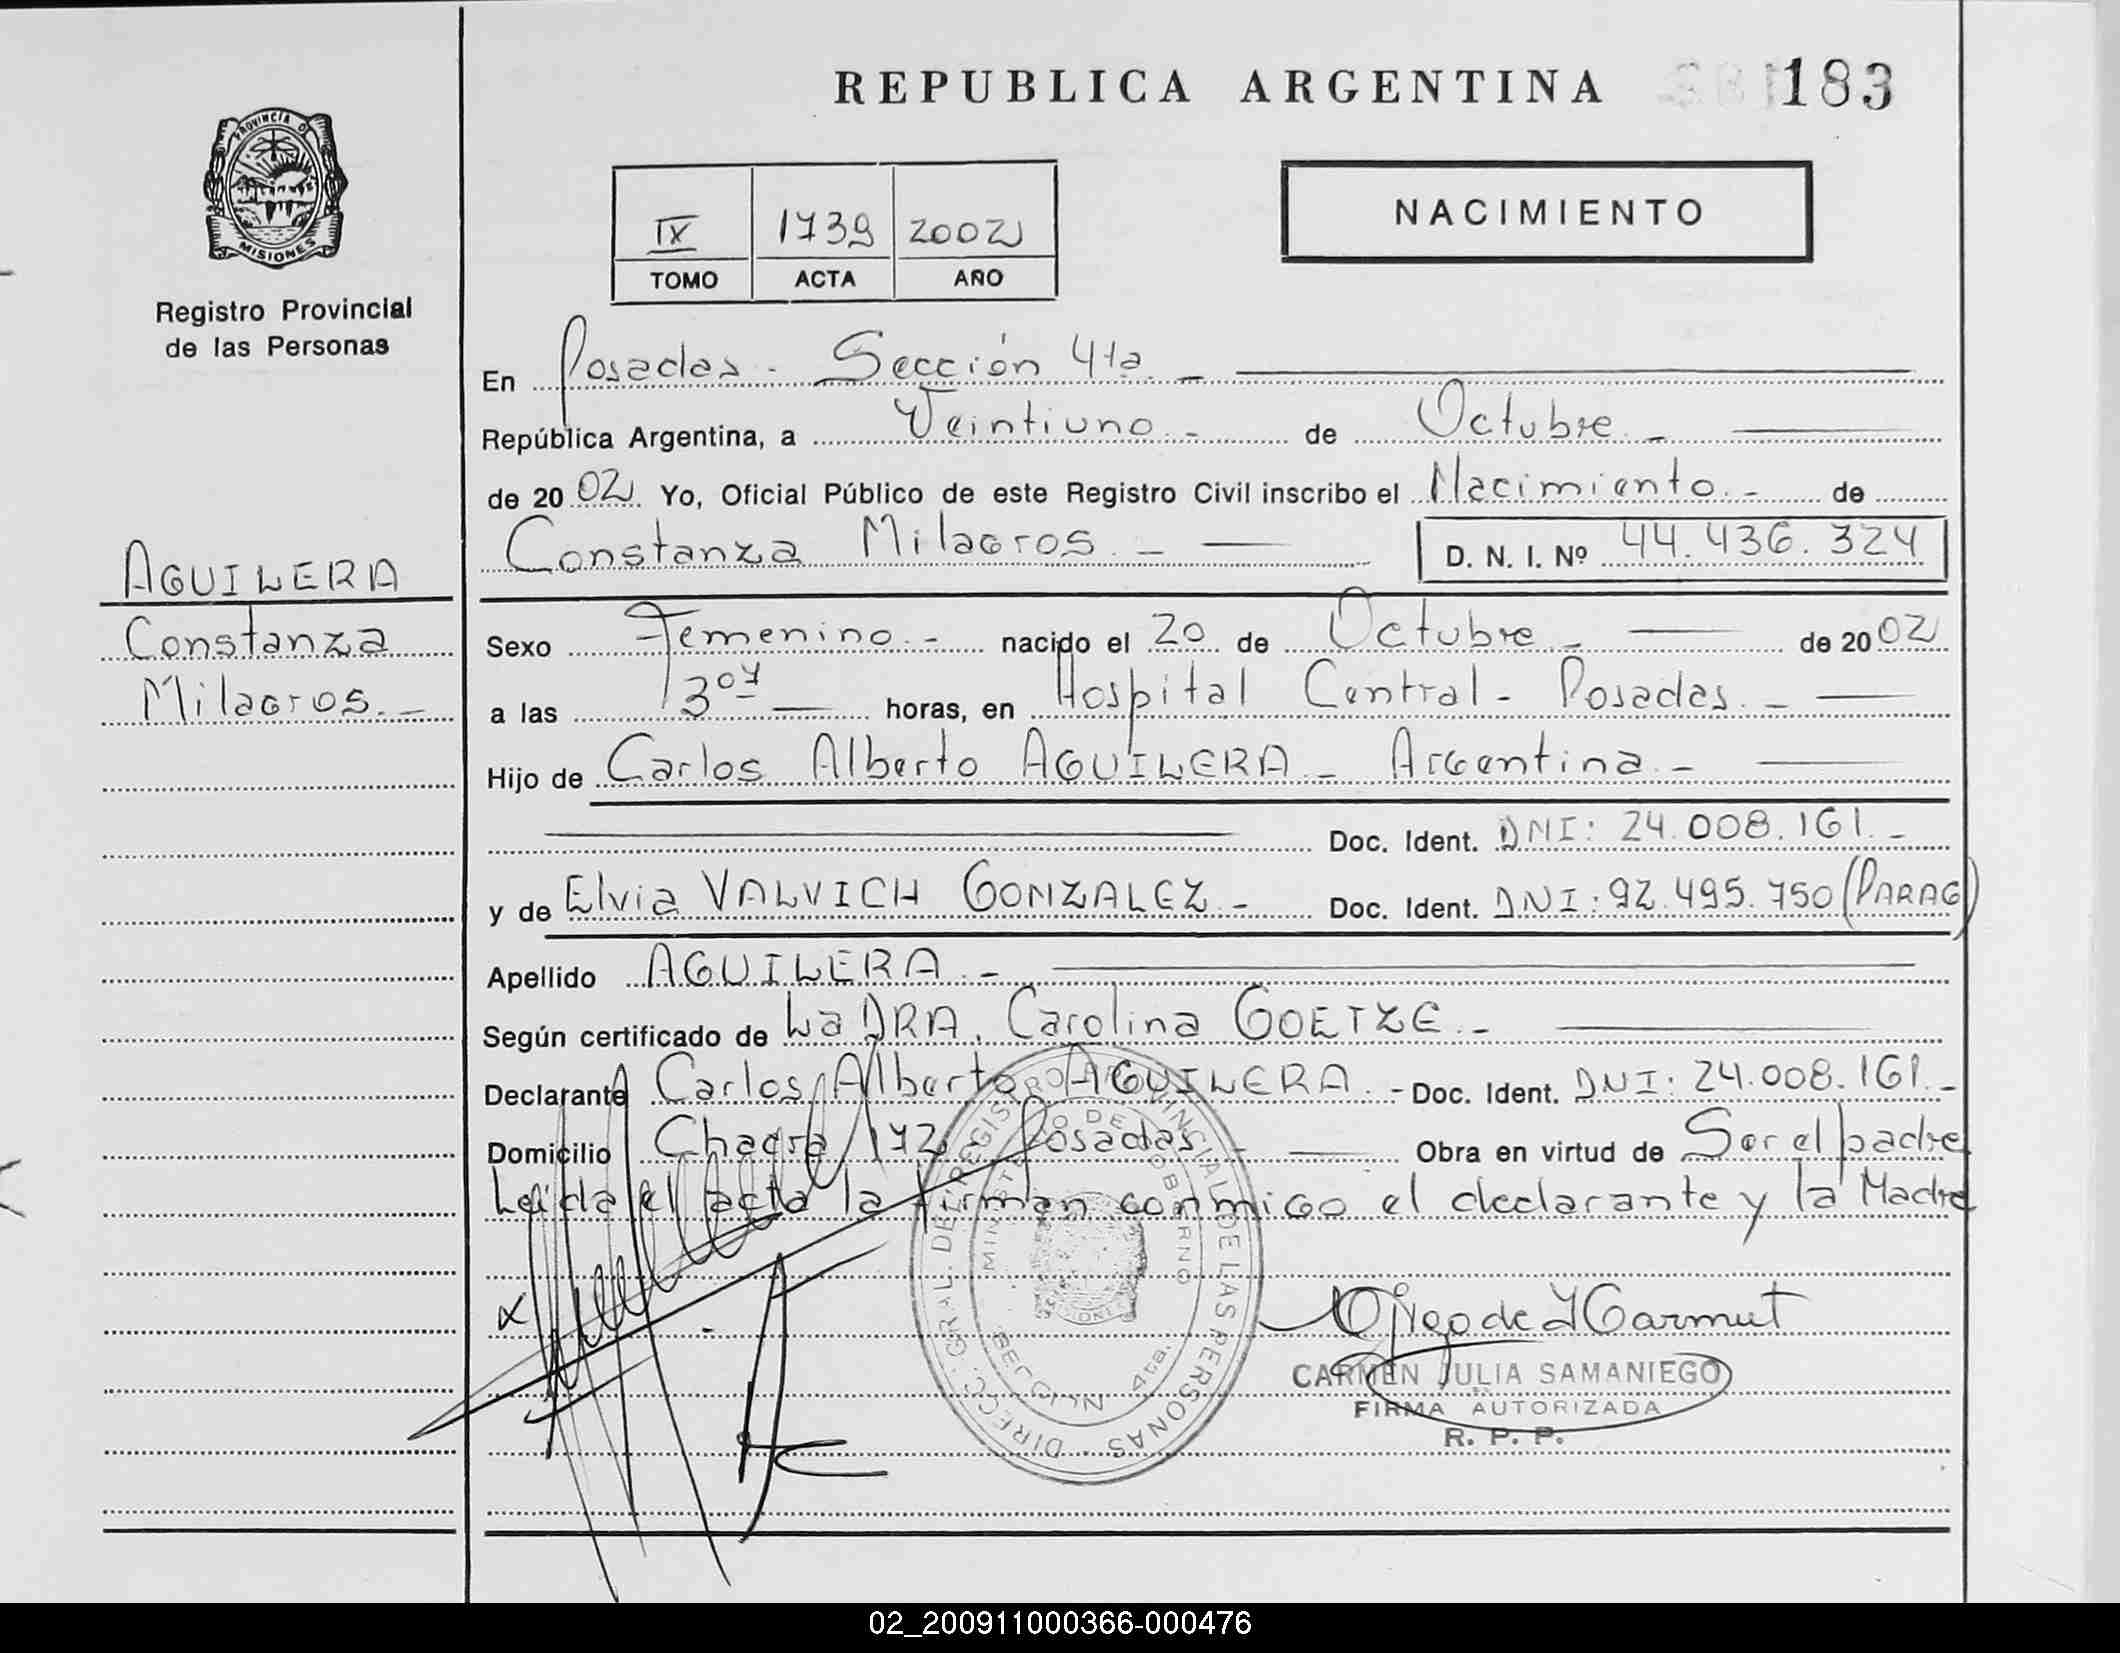 REPUBLICA ARGENTINA 183
PROVINCIA DE
MISIONES
Registro Provincial
de las Personas
IX 1739 2002
TOMO ACTA AÑO
NACIMIENTO
En Posadas - Sección 4ta. -
República Argentina, a Veintiuno. - de Octubre. -
de 2002 Yo, Oficial Público de este Registro Civil inscribo el Nacimiento. - de
Constanza Milagros. - D. N. I. Nº 44.436.324
AGUILERA
Constanza
Milagros. -
Sexo Femenino. - nacido el 20 de Octubre - de 2002
a las horas, en Hospital Central - Posadas. -
Hijo de Carlos Alberto AGUILERA - Argentina. -
Doc. Ident. DNI: 24.008.161. -
y de Elvia VALVICH GONZALEZ. - Doc. Ident. DNI: 92.495.750 (PARAG)
Apellido AGUILERA. -
Según certificado de La DRA. Carolina GOETZE. -
Declarante Carlos Alberto AGUILERA. - Doc. Ident. DNI: 24.008.161. -
Domicilio Chacra 172 - Posadas - Obra en virtud de Ser el padre
Leída el acta la firman conmigo el declarante y la Madre
DIRECC. GRAL. DEL REGISTRO PROVINCIAL DE LAS PERSONAS
MINISTERIO DE GOBIERNO
SECCION 4ta.
x
CARMEN JULIA SAMANIEGO
FIRMA AUTORIZADA
R. P. P.
02_200911000366-000476